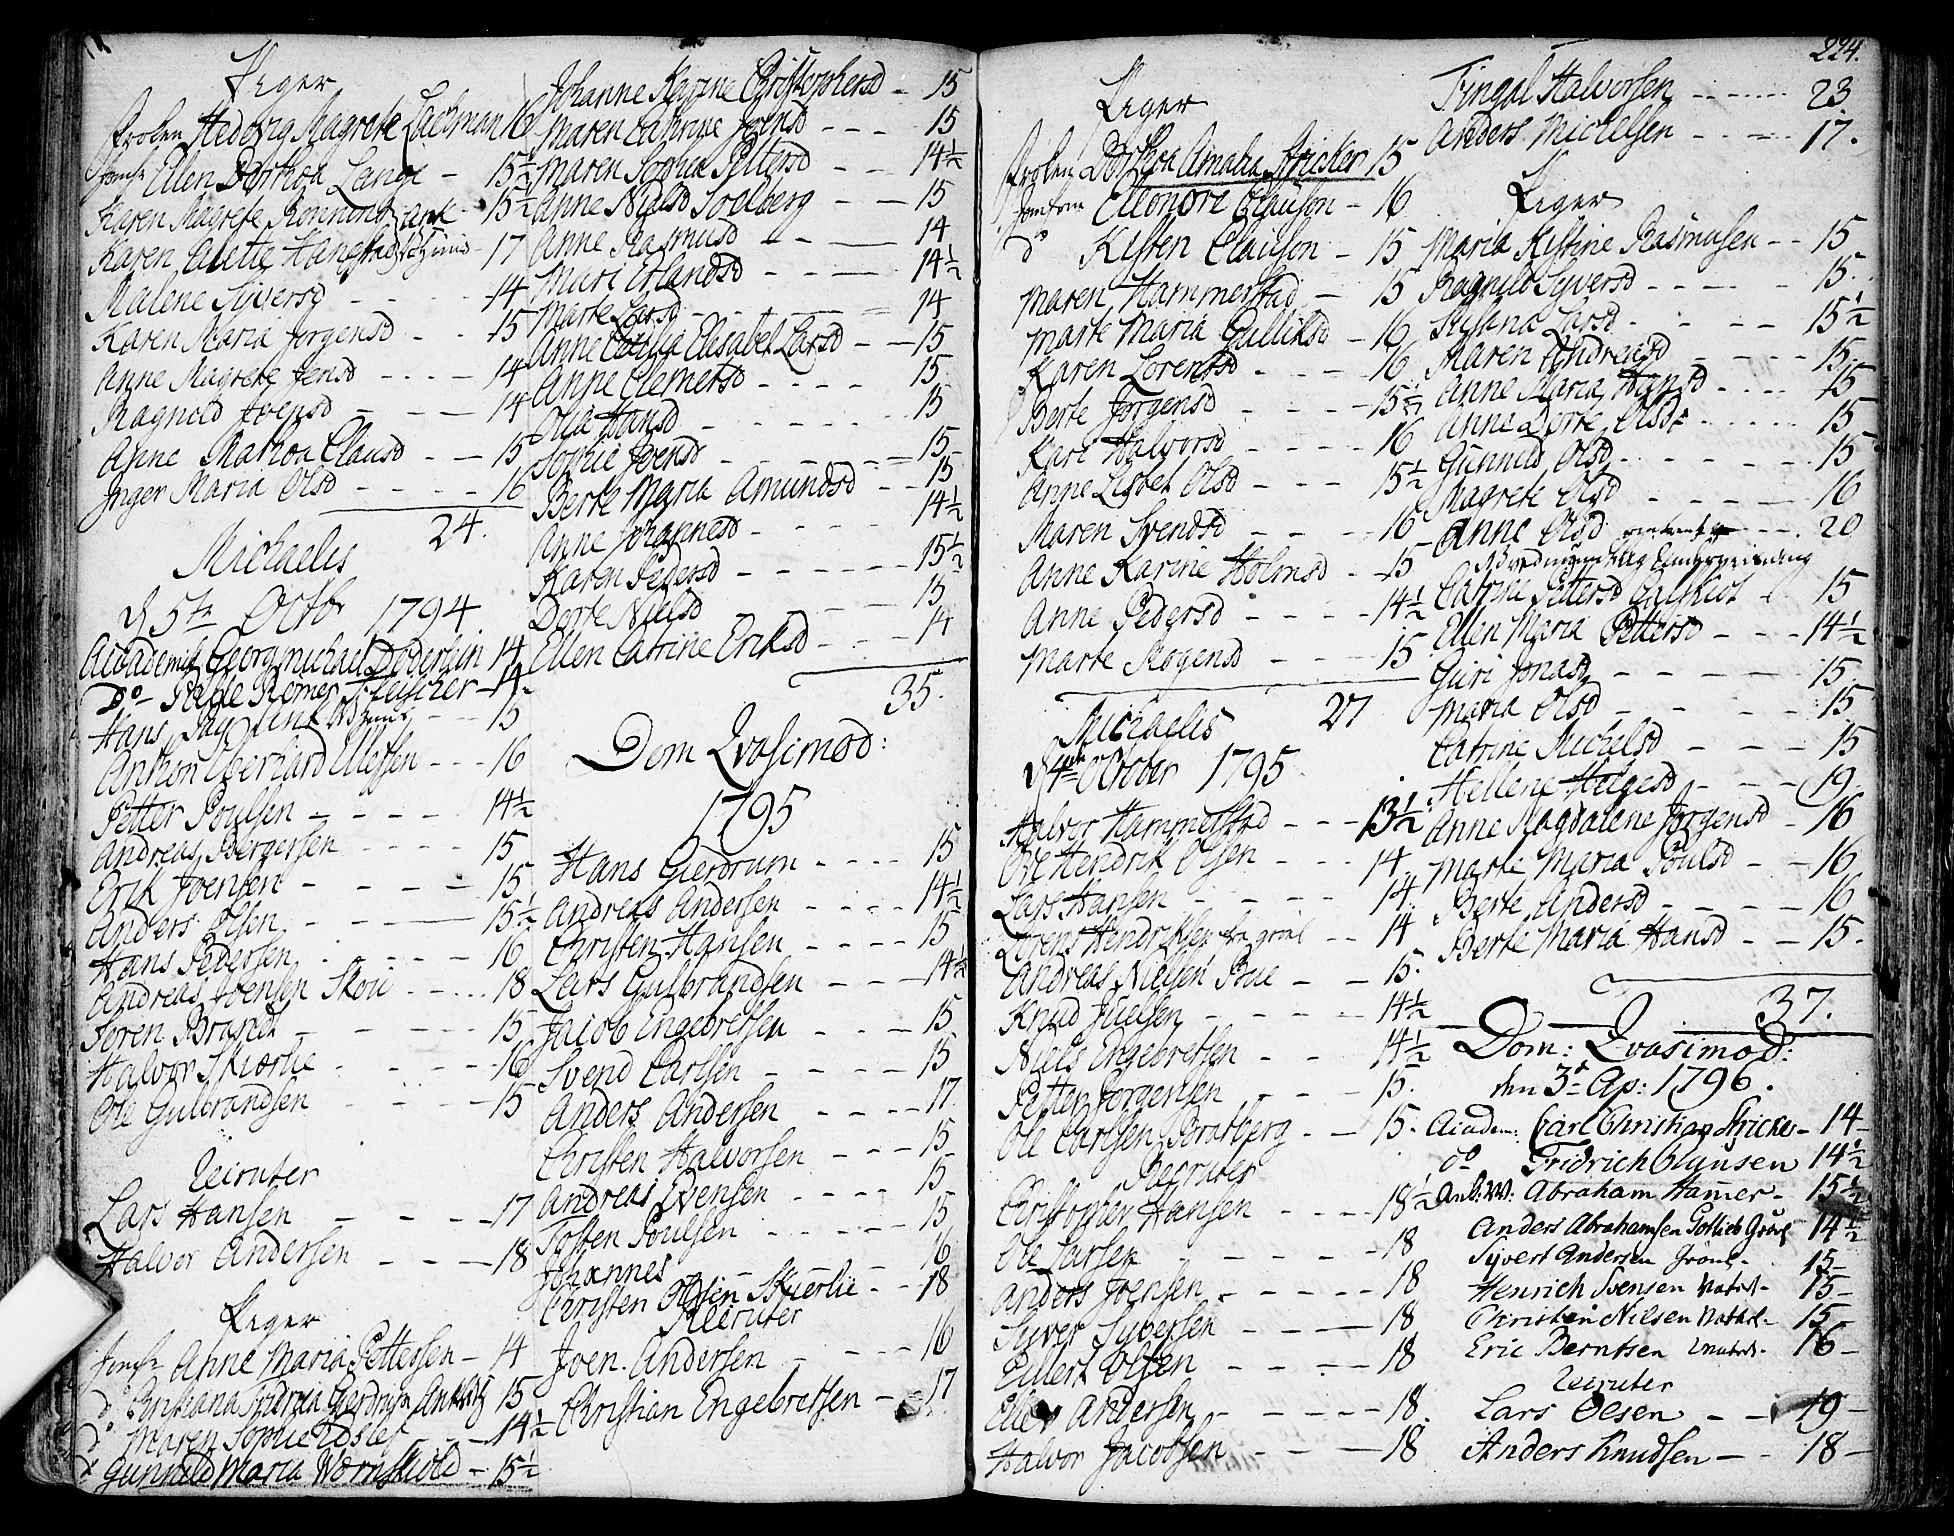 Piger
Frøken Hedevig Magrete Lachman 16
Jomfr Ellen Dorthea Lange - 15½
Karen Magrete Rønnord - 15½
Karen Alette Hangstad - 17
Malene Syversd - - - 14
Karen Maria Jørgensd - - 15
Anne Magrete Jensd - - - 14
Ragnild Joensd - - - 14
Anne Marthea Clausd - - 15
Inger Maria Olsd - - - 16
24.
Michaelis
d 5te Octbr 1794
Academist Georg Michael Døderlein 14
do Palle Rømer Fleischer 14
Hans - - 15
Anthon Gerhard Ellefsen - - - 16
Petter Poulsen - - - 14½
Andreas Børgersen - - - 15
Erik Joensen - - - 15
Anders Olsen - - - 15½
Hans Pedersen - - - 16
Andreas Joensen Skou - - 18
Søren Brandt - - - 15
Halvor Skiørlie - - - 16
Ole Gulbrandsen - - - 15
Recruter
Lars Hansen - - - 17
Halvor Andersen - - - 18
Piger
Jomfr Anne Maria Pettersen - 14
do Christiana 15
do Maren Sophie - - 14½
do Gunnild Maria Wernskiold - 15½
Johanne Karine Christophersd - 15
Maren Cathrine Joensd - - - 15
Maren Sophia Pettersd - - 14½
Anne Nielsd Soelberg - - 15
Anne Rasmusd - - - 14
Mari Erlandsd - - - 14½
Marte Larsd - - - 14
Anne Cecilia Elisabet Larsd - - 15
Anne Clemetsd - - - 15
Olia Hansd - - - 15
Sophie Joensd - - - 15
Berte Maria Amundsd - - 15
Anne Johannesd - - - 14½
Karen Pedersd - - - 15½
Dorte Nielsd - - - 15
Ellen Catrine Eriksd - - - 14
35.
Dom Qvasimod:
1795
Hans Gierdrum - - - 15
Andreas Andersen - - - 14½
Christen Hansen - - - 15
Lars Gulbrandsen - - - 14½
Jacob Engebretsen - - - 15
Svend Carlsen - - - 15
Anders Andersen - - - 17
Christen Halvorsen - - - 15
Andreas Evensen - - - 15
Tosten Poulsen - - - 15
Johannes - - - 16
Christen Olsen Skierlie - - 18
Recruter
Joen Andersen - - - 16
Christian Engebretsen - - 17
224.
Piger
Frøken Dorthea Amalia Stricker 15
Jomfru Eleonore Clauson - 16
do Kisten Clauson - 15
Maren Hammerstad - 15
Marte Maria Gulliksd - 16
Karen Lorentsd - - - 16
Berte Jørgensd - - - 15½
Kari Halvorsd - - - 16
Anne Lisbet Olsd - - - 15½
Maren Svendsd - - - 16
Anne Karine Holmsd - 15
Anne Pedersd - - - 14½
Marte Mogensd - - - 15
27
Michaelis
d 4de October 1795
Halvor Hammerstad - - - 13½
Ole Hendrik Olsen - - - 14
Lars Hansen - - - 14
Lorens Hendriksen - - 14
Andreas Nielsen - - 15
Knud Juelsen - - - 14½
Niels Engebretsen - - 14½
Petter Jørgensen - - - 15
Ole Carlsen Bratberg - - 15
Recruter
Christopher Hansen - - - 18½
Ole Larsen - - - 18
Anders Joensen - - - 18
Syver Syversen - - - 18
Ellert Olsen - - - 18
Ellev Andersen - - - 18
Halvor Jacobsen - - - 18
Fingal Halvorsen - - - 23
Anders Michelsen - - - 17.
Piger
Maria Kistine Rasmusen - - 15
Ragnild Syversd - - - 15
Susana Larsd - - - 15½
Maren Andreasd - - - 15
Anne Maria Hansd - - 15
Anne Dorte Olsd - - - 15
Gunnild Olsd - - - 15
Magrete Olsd - - - 16
Anne Olsd - - 20
Catrine Pettersd - 15
Ellen Maria Pettersd - - - 14½
Guri Jonasd - - - 15
Maria Olsd - - - 15
Catrine Michelsd - - - 15
Hellene Helgesd - - - 19
Anne Magdalene Jørgensd - 16
Marte Maria Poulsd - - 16
Berte Andersd - - - 16
Berte Maria Hansd - - 15.
37.
Dom: Qvasimod:
den 3e Ap: 1796.
Academ: Carl Christian Stricker - 14
do Fridrich Clausen 14½
Abraham Hamer - 15½
Anders Abrahamsen 14½
Syvert Andersen - 15 -
Henrich Svensen - 15 -
Christen Nilsen - 15 -
Eric Berntsen - 16 -
Recruter
Lars Olesen - - 19 -
Anders Knudsen - - 18 -